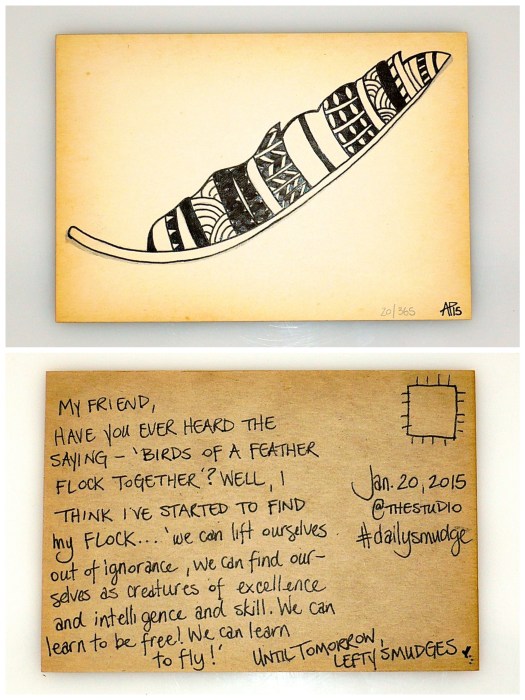 20/365
AP15
MY FRIEND,
HAVE YOU EVER HEARD THE
SAYING – 'BIRDS OF A FEATHER
FLOCK TOGETHER'? WELL, I
THINK I'VE STARTED TO FIND
my FLOCK... 'we can lift ourselves
out of ignorance, we can find our-
selves as creatures of excellence
and intelligence and skill. We can
learn to be free! We can learn
to fly!'
UNTIL TOMORROW,
LEFTY SMUDGES
Jan. 20, 2015
@THESTUDIO
#dailysmudge